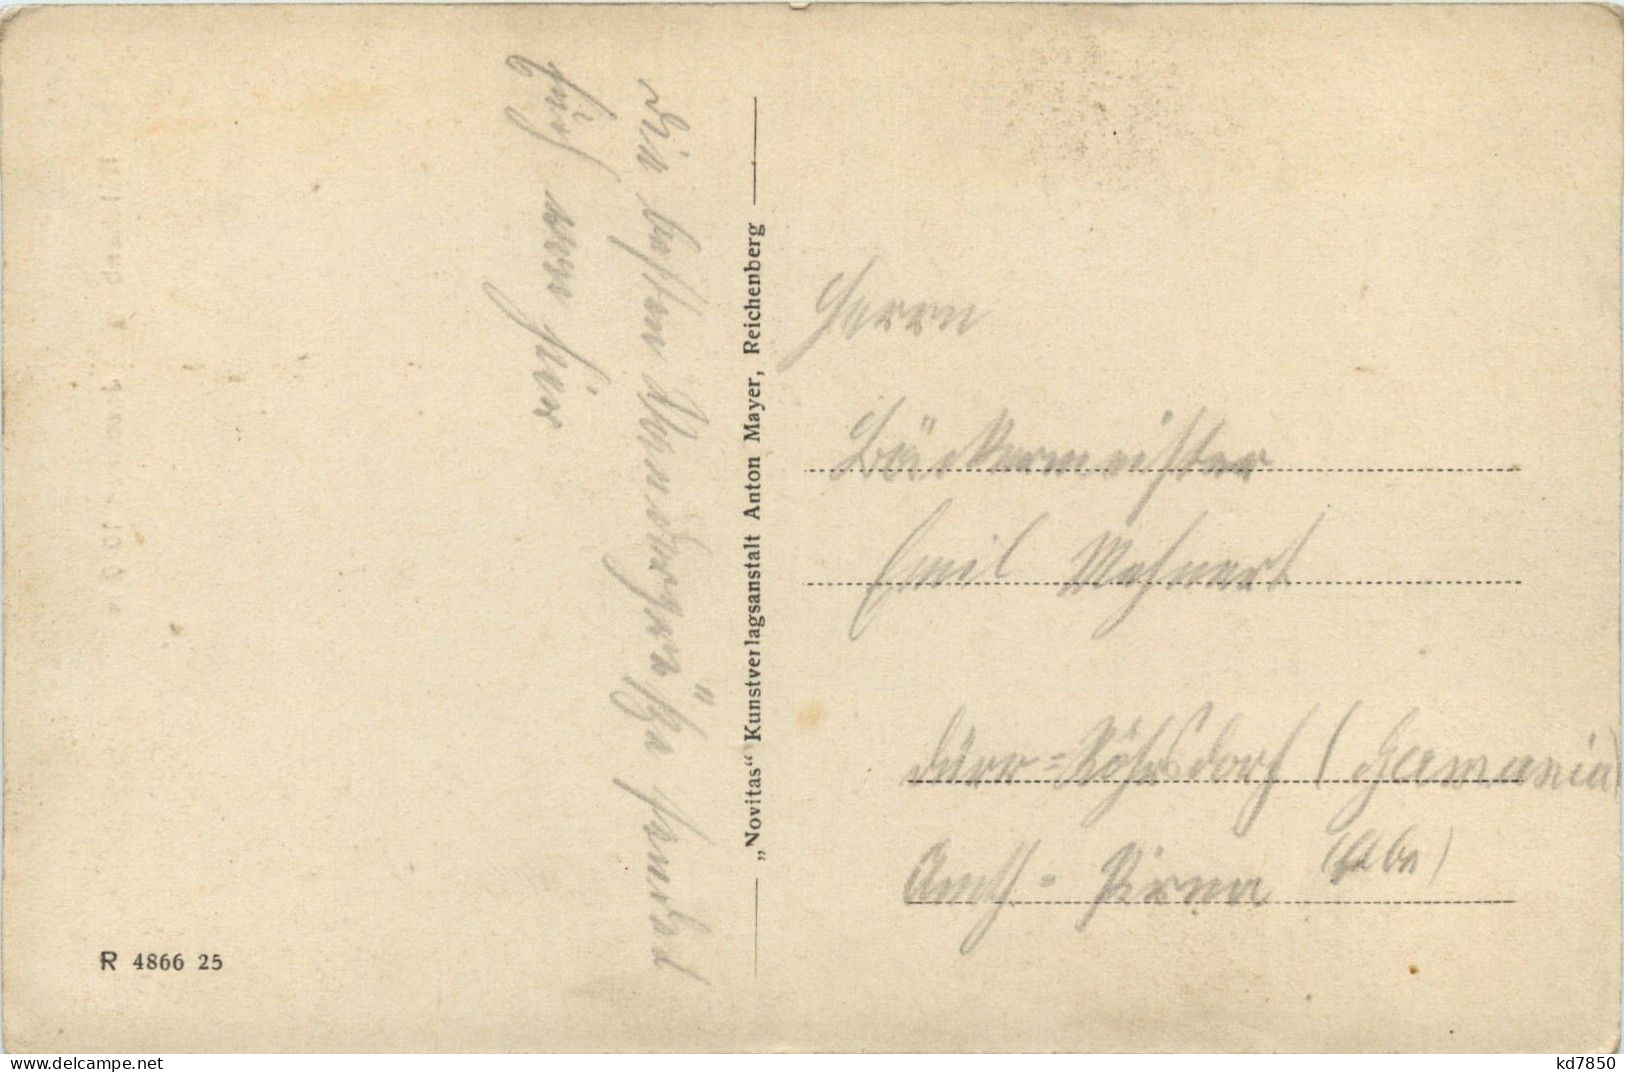 Die besten Wandergrüße sendet
Euch von hier
„Novitas“ Kunstverlagsanstalt Anton Mayer, Reichenberg
Herrn
Bäckermeister
Emil Mehnert
Dürr=Röhrsdorf (Germania)
Amth- Pirna (Elbe)
R 4866 25
delcampe.net
kd7850